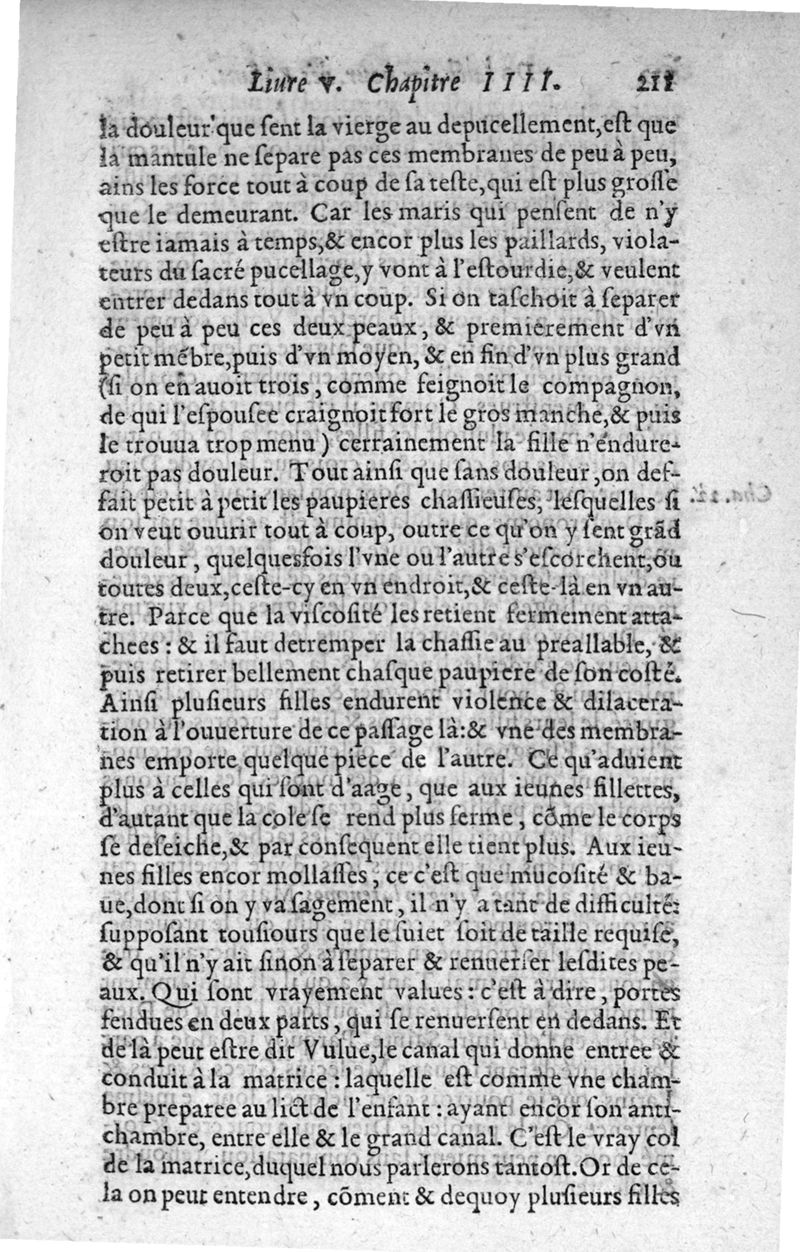 Liure v. Chapitre IIII. 211
la douleur que ſent la vierge au depucellement, eſt que
la mantule ne ſepare pas ces membranes de peu à peu,
ains les force tout à coup de ſa teſte, qui eſt plus groſſe
que le demeurant. Car les maris qui penſent de n'y
eſtre iamais à temps, & encor plus les paillards, viola-
teurs du ſacré pucellage, y vont à l'eſtourdie, & veulent
entrer dedans tout à vn coup. Si on taſchoit à ſeparer
de peu à peu ces deux peaux, & premierement d'vn
petit mébre, puis d'vn moyen, & en fin d'vn plus grand
(ſi on en auoit trois, comme feignoit le compagnon,
de qui l'eſpouſee craignoit fort le gros manche, & puis
le trouua trop menu) certainement la fille n'endure-
roit pas douleur. Tout ainſi que ſans douleur, on deſ-
fait petit à petit les paupieres chaſſieuſes, leſquelles ſi
on veut ouurir tout à coup, outre ce qu'on y ſent grãd
douleur, quelquesfois l'vne ou l'autre s'eſcorchent, ou
toutes deux, ceſte-cy en vn endroit, & ceſte-là en vn au-
tre. Parce que la viſcoſité les retient fermement atta-
chees : & il faut detremper la chaſſie au preallable, &
puis retirer bellement chaſque paupiere de ſon coſté.
Ainſi pluſieurs filles endurent violence & dilacera-
tion à l'ouuerture de ce paſſage là: & vne des membra-
nes emporte quelque piece de l'autre. Ce qu'aduient
plus à celles qui ſont d'aage, que aux ieunes fillettes,
d'autant que la cole ſe rend plus ferme, cõme le corps
ſe deſeiche, & par conſequent elle tient plus. Aux ieu-
nes filles encor mollaſſes, ce c'eſt que mucoſité & ba-
ue, dont ſi on y va ſagement, il n'y a tant de difficulté:
ſuppoſant touſiours que le ſuiet ſoit de taille requiſe,
& qu'il n'y ait ſinon à ſeparer & renuerſer leſdites pe-
aux. Qui ſont vrayement values : c'eſt à dire, portes
fendues en deux parts, qui ſe renuerſent en dedans. Et
de là peut eſtre dit Vulue, le canal qui donne entree &
conduit à la matrice : laquelle eſt comme vne cham-
bre preparee au lict de l'enfant : ayant encor ſon anti-
chambre, entre elle & le grand canal. C'eſt le vray col
de la matrice, duquel nous parlerons tantoſt. Or de ce-
la on peut entendre, cõment & dequoy pluſieurs filles